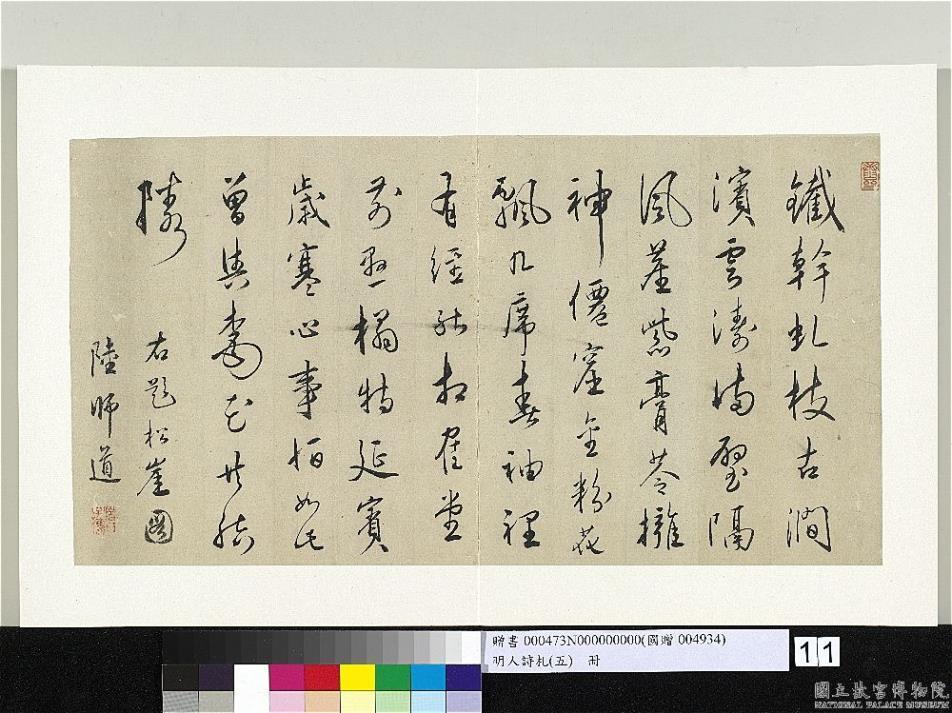 鐵幹虬枝古澗
濱雲濤滿壑隔
風塵紫膏苓擁
神僊窟金粉花
飄几席春袖裡
有經能相隺堂
前懸榻特延賓
歲寒心事恒如此
曾與共結
隣
右題松崖圖
陸師道
贈書 000473N000000000(國贈 004934)
明人詩札(五) 冊
11
國立故宮博物院
NATIONAL PALACE MUSEUM